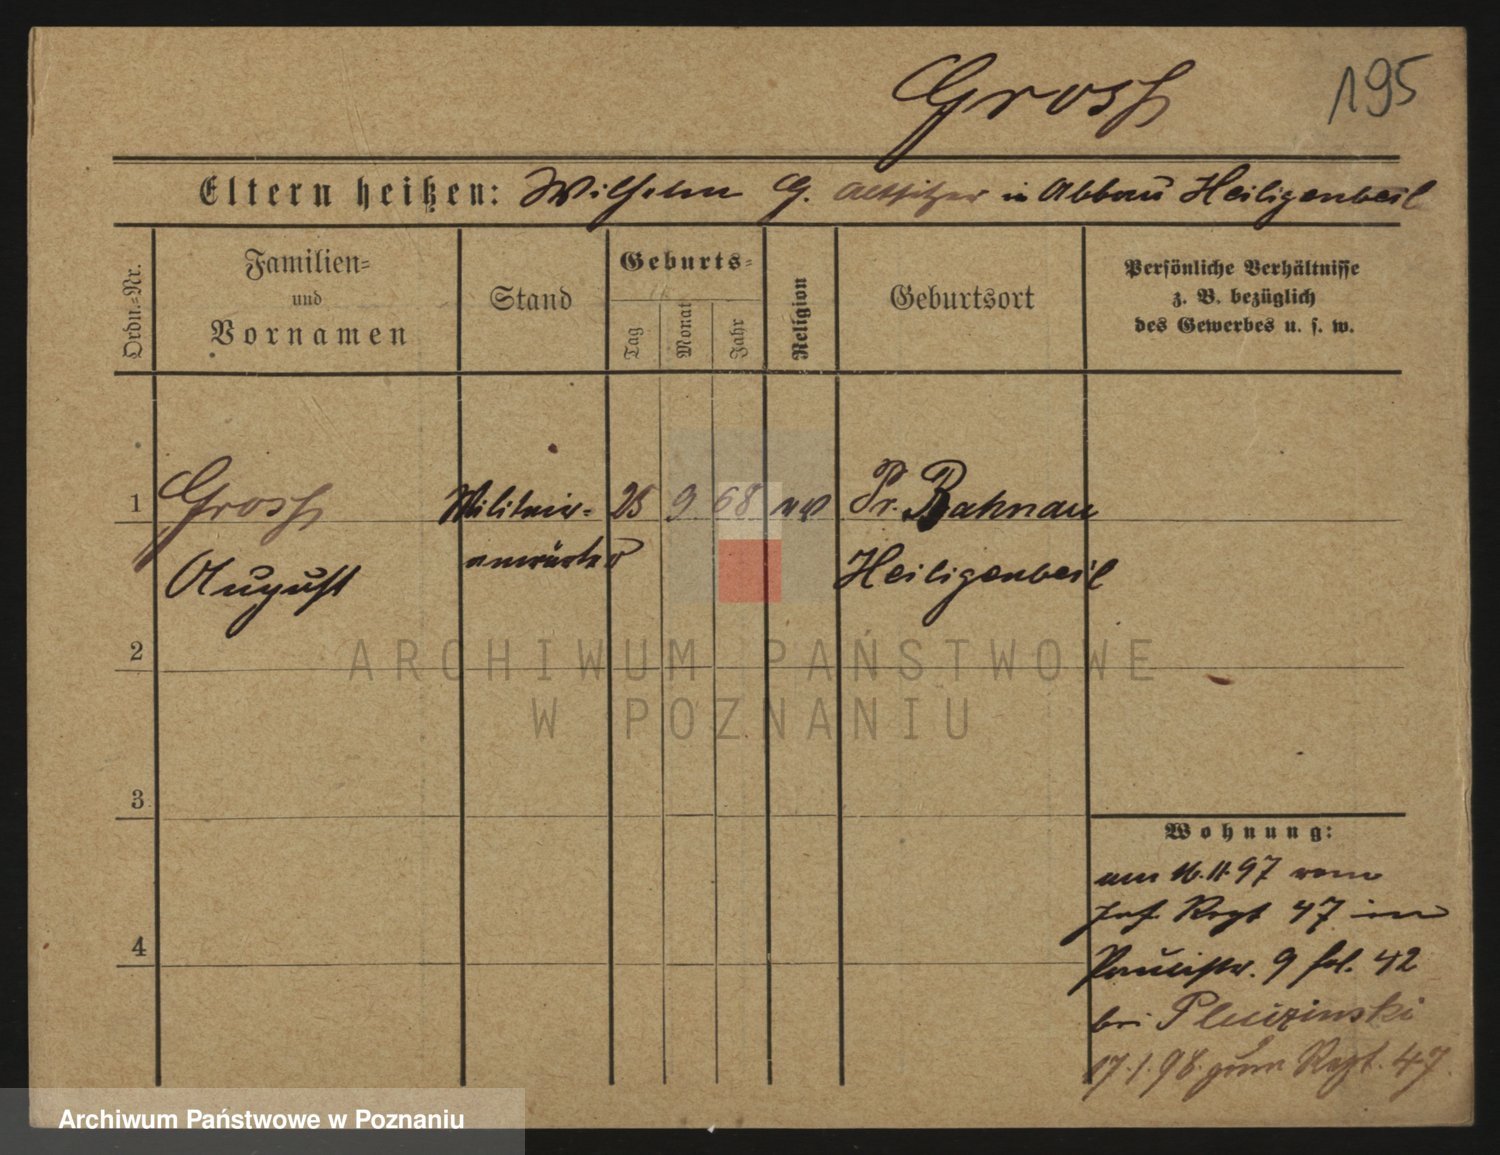 Grosz
195
Eltern heißen: Wilhelm G. Altsitzer in Abbau Heiligenbeil
Ordn.-Nr.
Familien-
und
Vornamen
Stand
Geburts-
Tag
Monat
Jahr
Religion
Geburtsort
Persönliche Verhältnisse
z. B. bezüglich
des Gewerbes u. s. w.
1
Grosz
Militair-
25
9
68
ev
Pr. Bahnau
August
anwärter
Heiligenbeil
2
ARCHIWUM PAŃSTWOWE
W POZNANIU
3
4
Wohnung:
am 16.11.97 vom
Inf. Regt 47 in
Paulistr. 9 fol. 42
bei Pluczinski
17.1.98. zum Regt. 47.
Archiwum Państwowe w Poznaniu